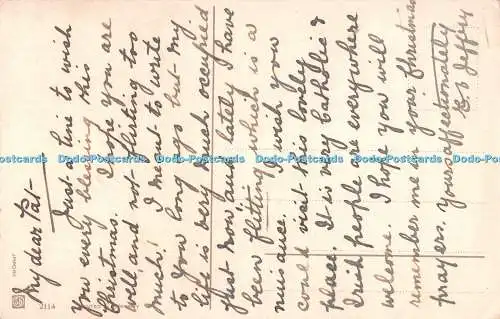 My dear Pat —
Just a line to wish
you every blessing this
Christmas. I hope you are
well and not flirting too
much. I meant to write
to you long ago but my
life is very much occupied
just now and lately I have
been "flitting" which is a
nuisance. I wish you
could visit this lovely
place. It is very Catholic &
Irish people are everywhere
welcome. I hope you will
remember me in your Christmas
prayers. Yours affectionately
2114
Dodo-Postcards Dodo-Postcards Dodo-Postcards Dodo-Postcards Dodo-Postcards
Dodo-Postcards Dodo-Postcards Dodo-Postcards Dodo-Postcards